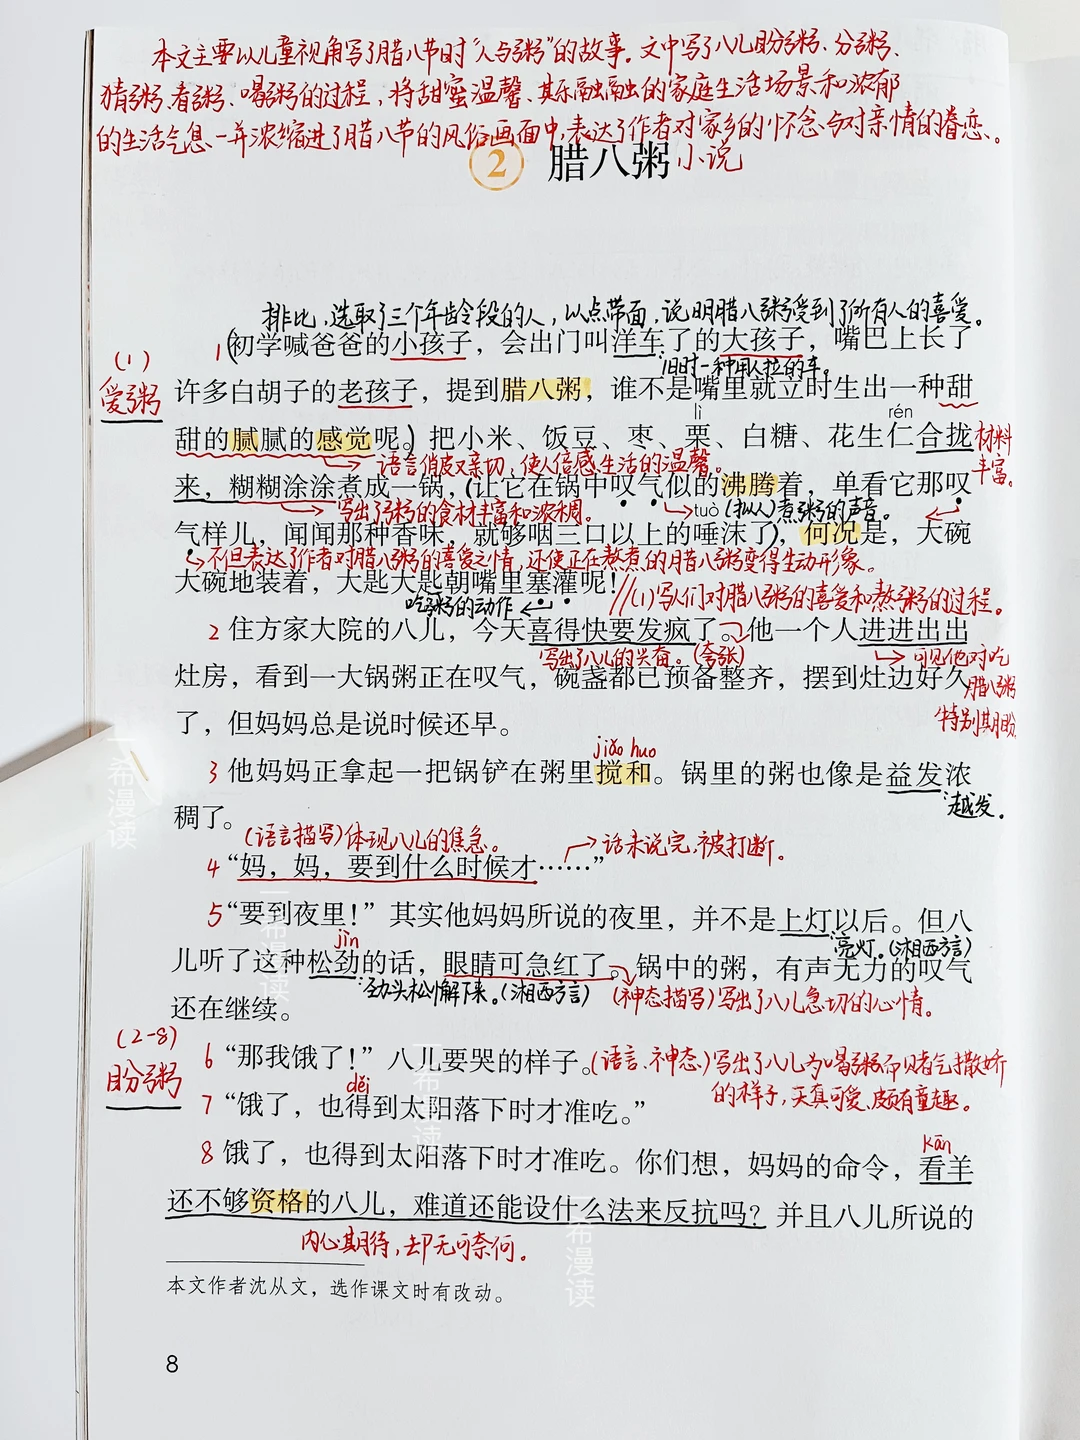 本文主要以儿童视角写了腊八节时“人与粥”的故事。文中写了八儿盼粥、分粥、
猜粥、看粥、喝粥的过程，将甜蜜温馨、其乐融融的家庭生活场景和浓郁
的生活气息一并浓缩进了腊八节的风俗画面中，表达了作者对家乡的怀念与对亲情的眷恋。
2 腊八粥 小说
排比，选取了三个年龄段的人，以点带面，说明腊八粥受到了所有人的喜爱。
(1)
爱粥
1 初学喊爸爸的小孩子，会出门叫洋车了的大孩子，嘴巴上长了
旧时一种用人拉的车。
许多白胡子的老孩子，提到腊八粥，谁不是嘴里就立时生出一种甜
lì rén
甜的腻腻的感觉呢。把小米、饭豆、枣、栗、白糖、花生仁合拢
材料
丰富。
语言俏皮又亲切，使人倍感生活的温馨。
来，糊糊涂涂煮成一锅，(让它在锅中叹气似的沸腾着，单看它那叹
写出了粥的食材丰富和浓稠。
tuò (拟人)煮粥的声音。
气样儿，闻闻那种香味，就够咽三口以上的唾沫了)，何况是，大碗
不但表达了作者对腊八粥的喜爱之情，还使正在熬煮的腊八粥变得生动形象。
大碗地装着，大匙大匙朝嘴里塞灌呢！
吃粥的动作
//(1)写人们对腊八粥的喜爱和熬粥的过程。
2 住方家大院的八儿，今天喜得快要发疯了。他一个人进进出出
写出了八儿的兴奋。(夸张)
可见他对吃
腊八粥
特别期盼
灶房，看到一大锅粥正在叹气，碗盏都已预备整齐，摆到灶边好久
了，但妈妈总是说时候还早。
jiǎo huo
3 他妈妈正拿起一把锅铲在粥里搅和。锅里的粥也像是益发浓
越发。
稠了。
(语言描写)体现八儿的焦急。
话未说完，被打断。
4 “妈，妈，要到什么时候才……”
5 “要到夜里！”其实他妈妈所说的夜里，并不是上灯以后。但八
亮灯。(湘西方言)
jìn
儿听了这种松劲的话，眼睛可急红了。锅中的粥，有声无力的叹气
劲头松懈下来。(湘西方言)
(神态描写)写出了八儿急切的心情。
还在继续。
(2-8)
盼粥
6 “那我饿了！”八儿要哭的样子。
(语言、神态)写出了八儿为喝粥而赌气撒娇
的样子，天真可爱，颇有童趣。
děi
7 “饿了，也得到太阳落下时才准吃。”
8 饿了，也得到太阳落下时才准吃。你们想，妈妈的命令，看羊
kān
还不够资格的八儿，难道还能设什么法来反抗吗？并且八儿所说的
内心期待，却无可奈何。
本文作者沈从文，选作课文时有改动。
8
一希漫读
一希漫读
一希漫读
一希漫读